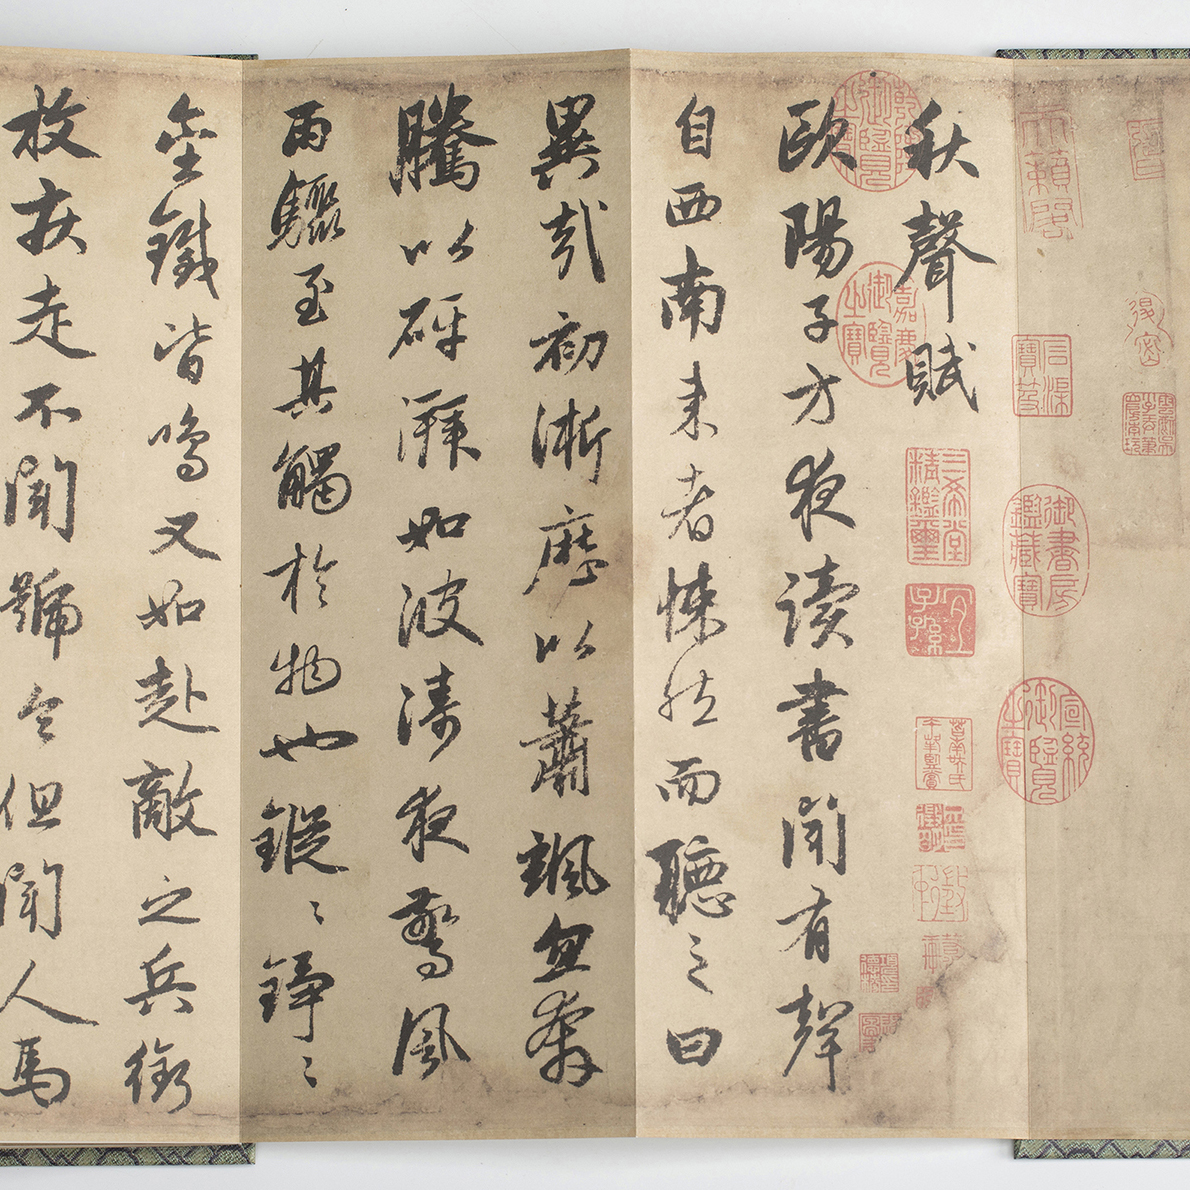 天籟閣
石渠寶笈
御書房鑑藏寶
宣統御覽之寶
秋聲賦
三希堂精鑑璽
宜子孫
乾隆御覽之寶
嘉慶御覽之寶
歐陽子方夜讀書聞有聲
自西南来者悚然而聽之曰
異哉初淅歷以蕭颯忽奔
騰以砰湃如波濤夜驚風
雨驟至其觸於物也鏦〻錚〻
金鐵皆鳴又如赴敵之兵銜
枚疾走不聞號令但聞人馬